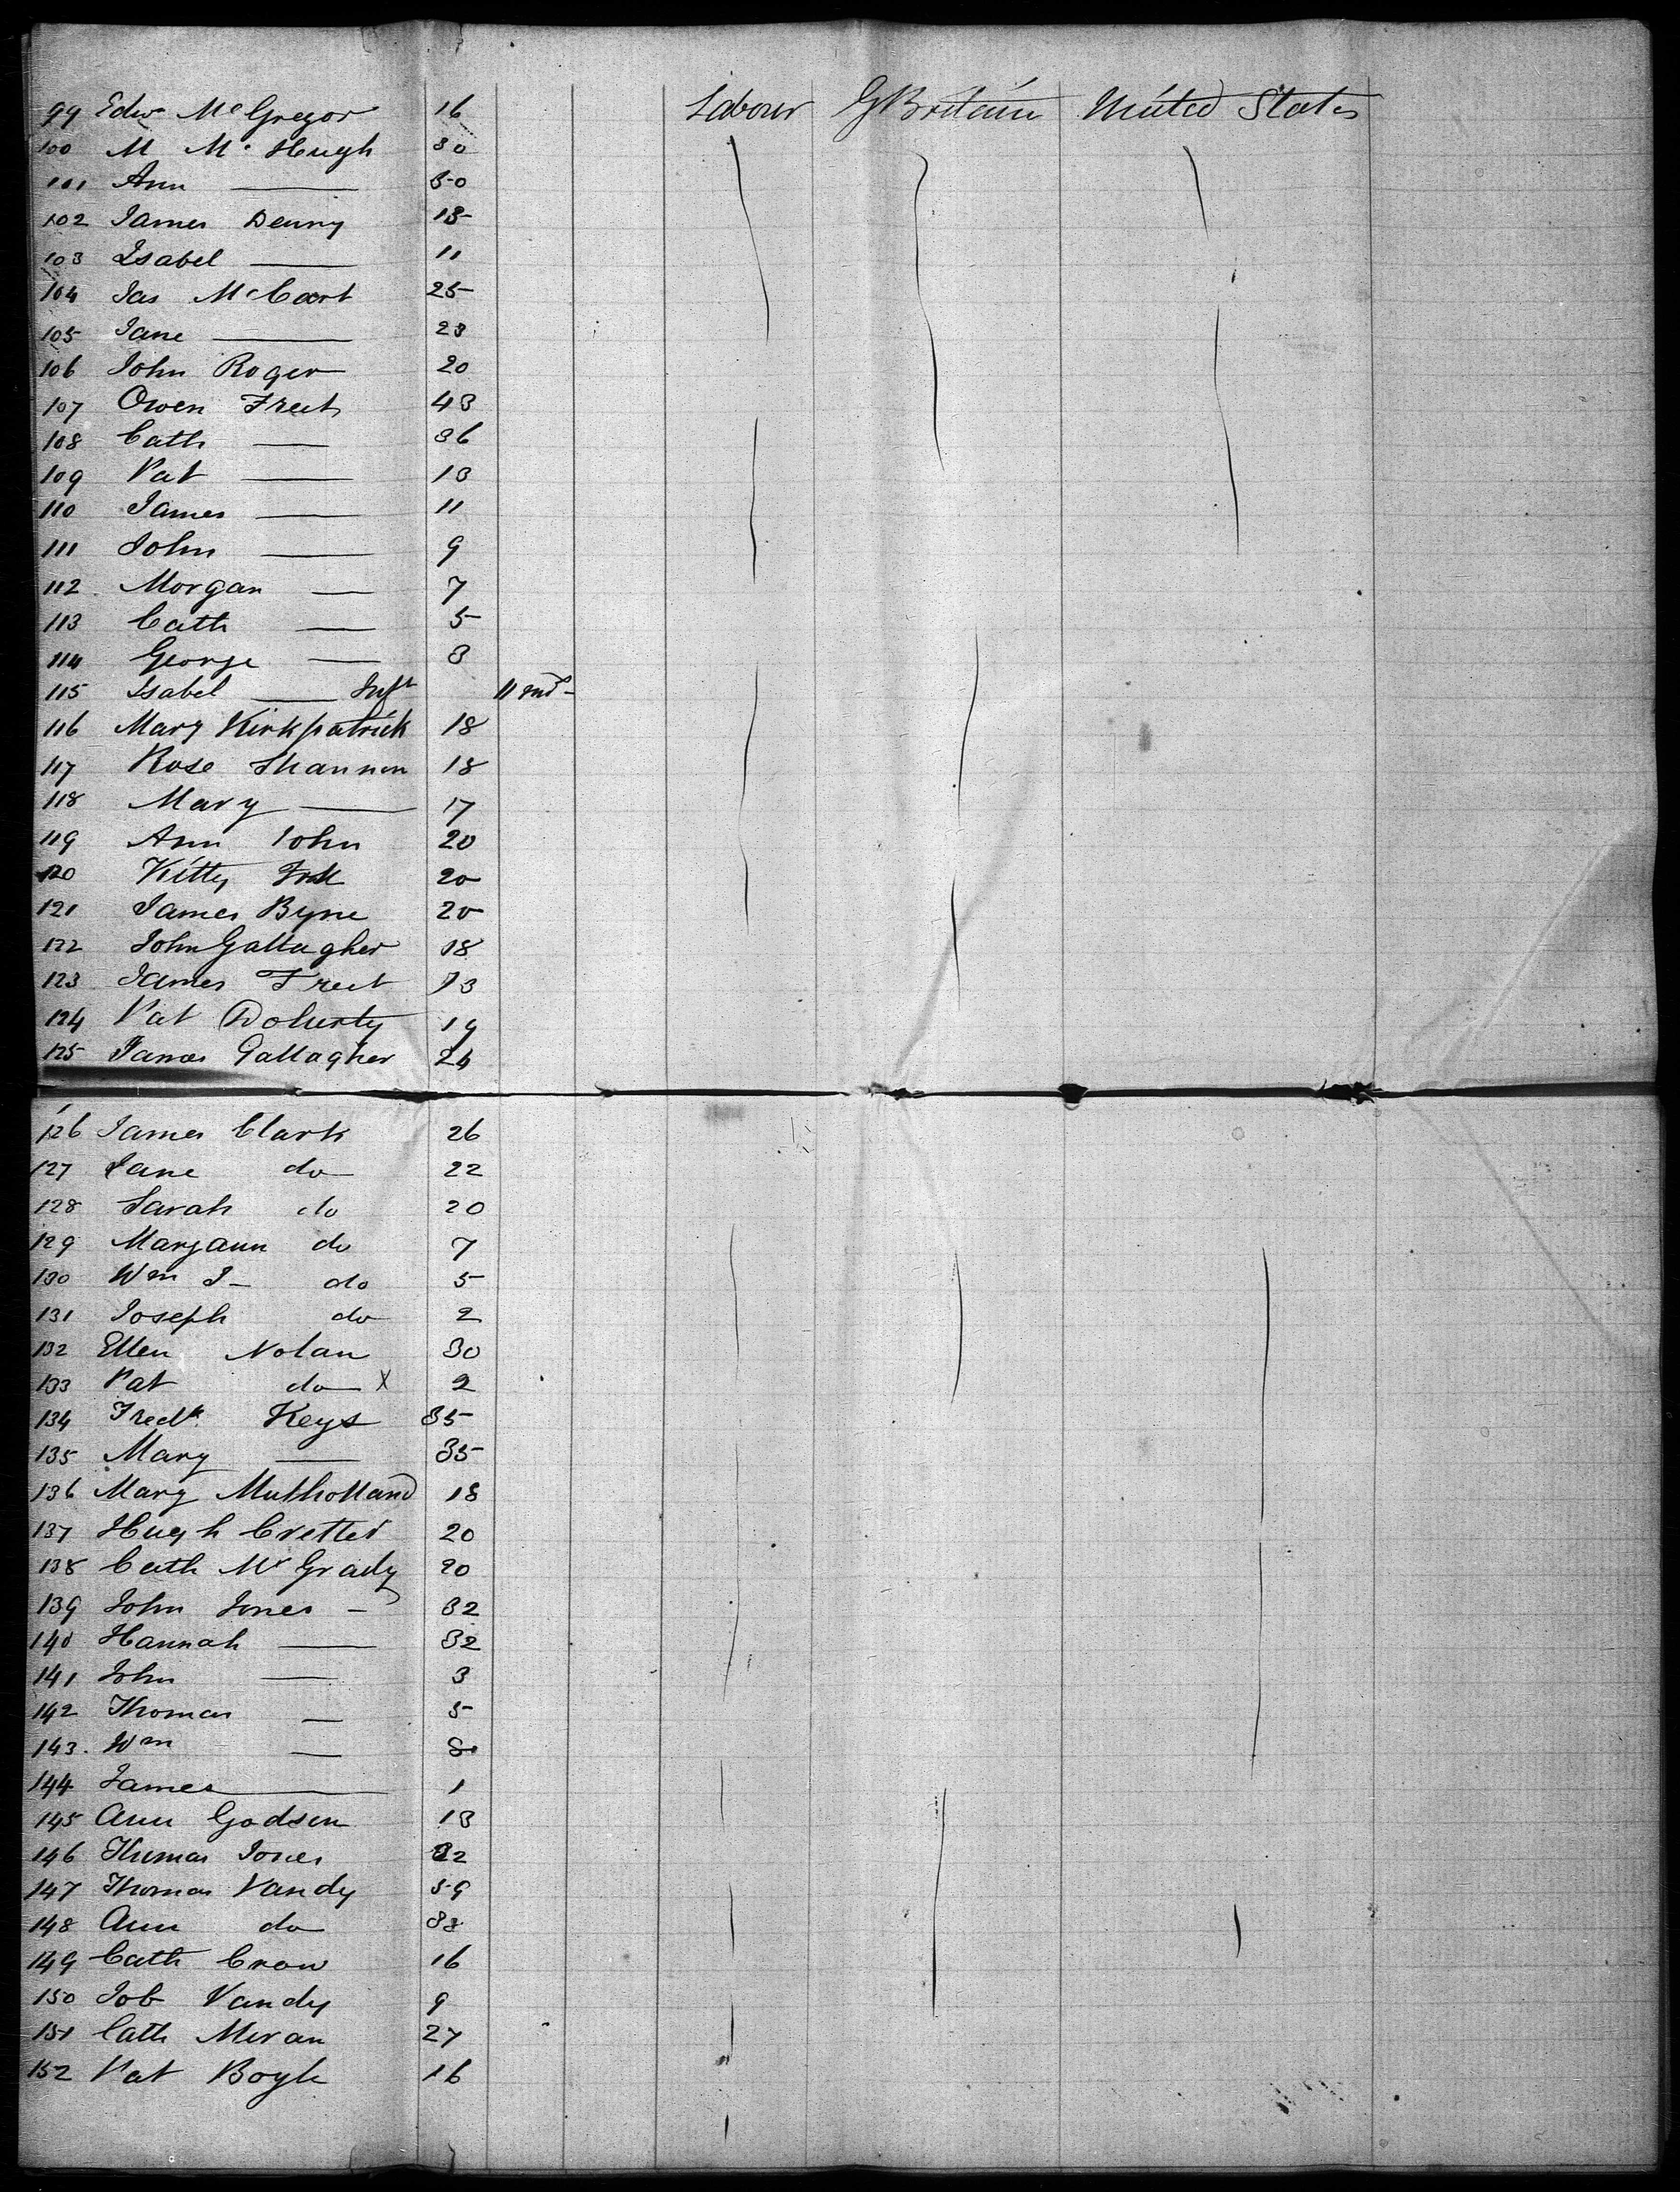 99 Edw McGregor 16 Labour GBritain United States
100 M McHugh 30
101 Ann — 30
102 James Denny 13
103 Isabel — 11
104 Jas McCart 25
105 Jane — 23
106 John Roger 20
107 Owen Treet 43
108 Cath — 36
109 Pat — 13
110 James — 11
111 John — 9
112 Morgan — 7
113 Cath — 5
114 George — 3
115 Isabel — Inft 11 md
116 Mary Kirkpatrick 18
117 Rose Shannon 18
118 Mary — 17
119 Ann John 20
120 Kitty 20
121 James Byne 20
122 John Gallagher 18
123 James Treet 13
124 Pat Doherty 19
125 James Gallagher 24
126 James Clark 26
127 Jane do 22
128 Sarah do 20
129 Margann do 7
130 Wm J- do 5
131 Joseph do 2
132 Ellen Nolan 30
133 Pat do X 2
134 Fredk Keys 35
135 Mary — 35
136 Mary Mulholland 18
137 Hugh 20
138 Cath McGrady 20
139 John Jones — 32
140 Hannah — 32
141 John — 3
142 Thomas — 5
143. Wm — 8
144 James — 1
145 Ann Godson 13
146 Thomas Jones 32
147 Thomas Vandy 59
148 Ann do 33
149 Cath Crow 16
150 Job Vandy 9
151 Cath Moran 27
152 Pat Boyle 16